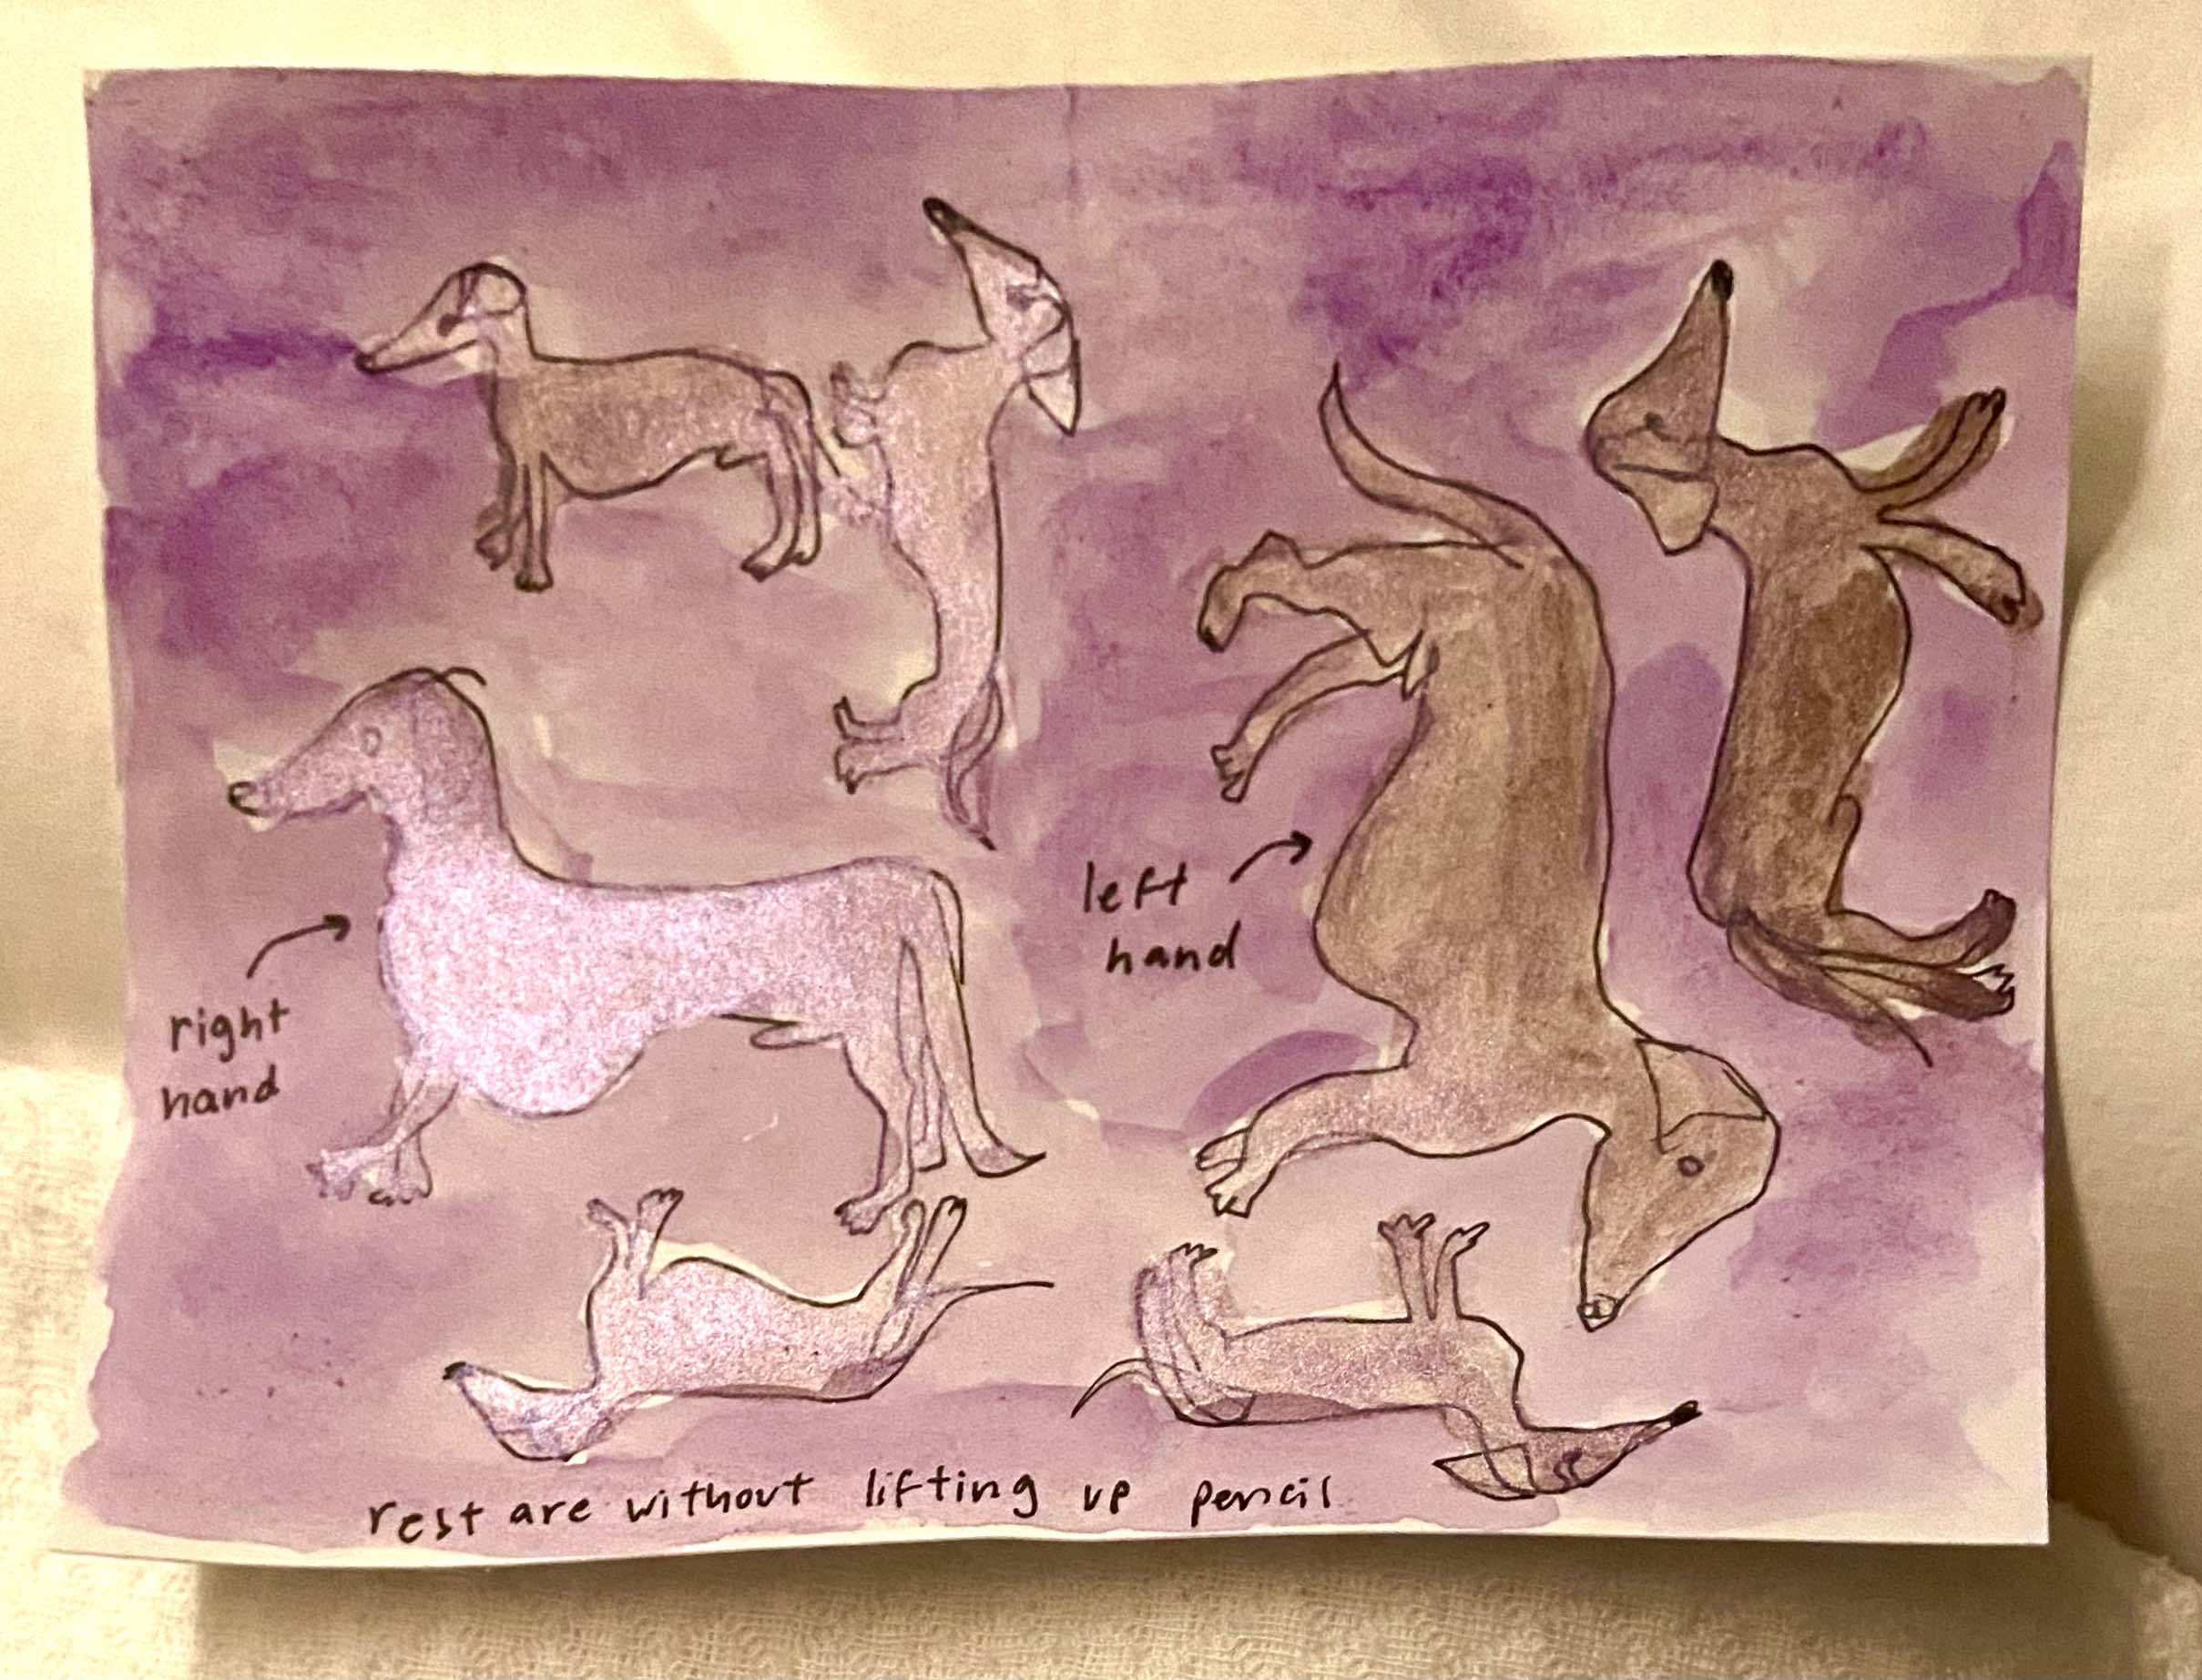 right
hand
left
hand
rest are without lifting up pencil